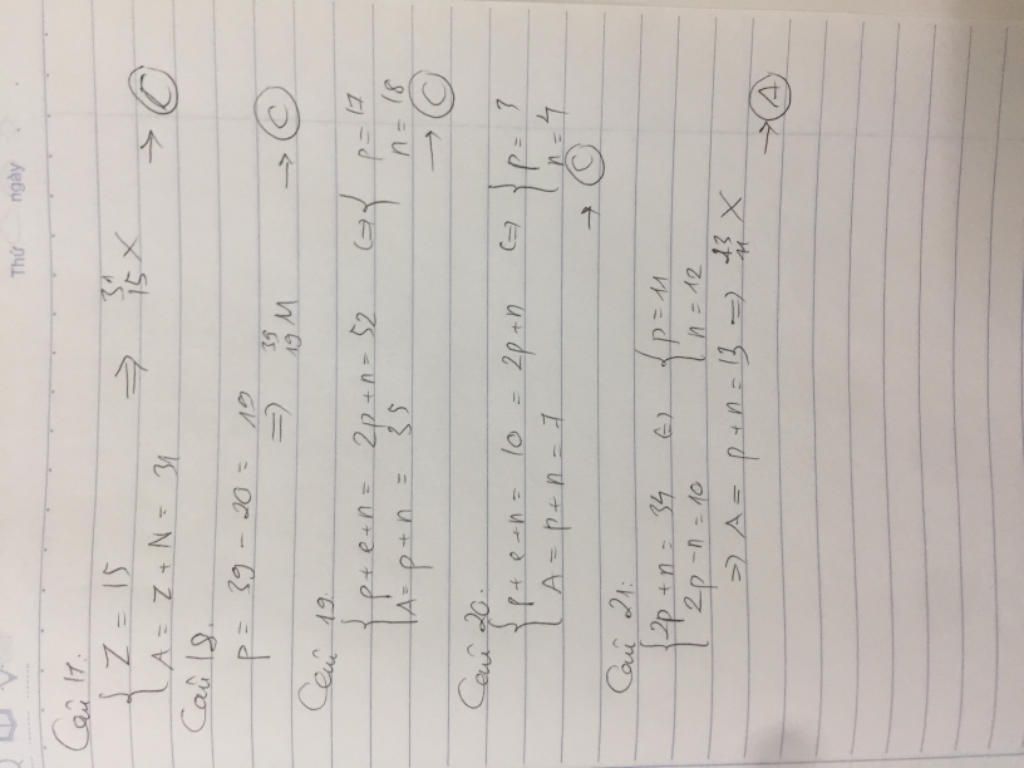 Thứ ngày
Câu 17:
{ Z = 15
A = Z + N = 31 => ³¹₁₅X → Ⓒ
Câu 18.
p = 39 - 20 = 19
=> ³⁹₁₉M → Ⓒ
Câu 19:
{ p + e + n = 2p + n = 52 <=> { p = 17
A = p + n = 35 n = 18
→ Ⓒ
Câu 20:
{ p + e + n = 10 = 2p + n <=> { p = 3
A = p + n = 7 n = 4
→ Ⓒ
Câu 21:
{ 2p + n = 34 <=> { p = 11
2p - n = 10 n = 12
=> A = p + n = 13 => ²³₁₁X
→ Ⓐ